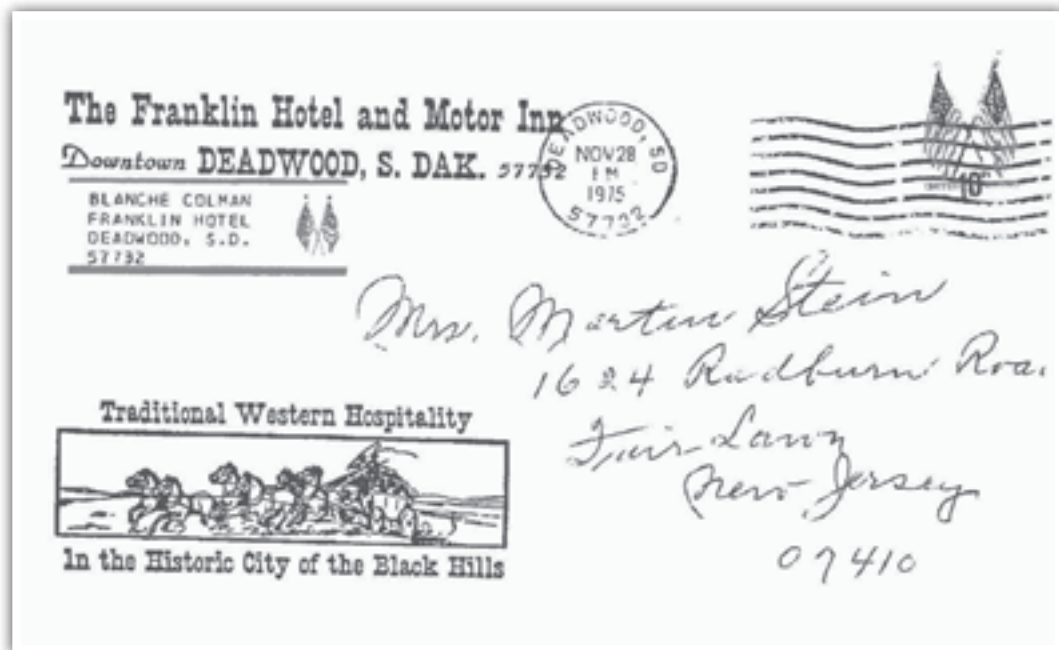 The Franklin Hotel and Motor Inn
Downtown DEADWOOD, S. DAK. 57732
BLANCHE COLMAN
FRANKLIN HOTEL
DEADWOOD, S.D.
57732
DEADWOOD, SD
NOV 28
PM
1975
57732
10c
Mrs. Martin Stein
1624 Radburn Roa
Fair Lawn
New Jersey
07410
Traditional Western Hospitality
In the Historic City of the Black Hills